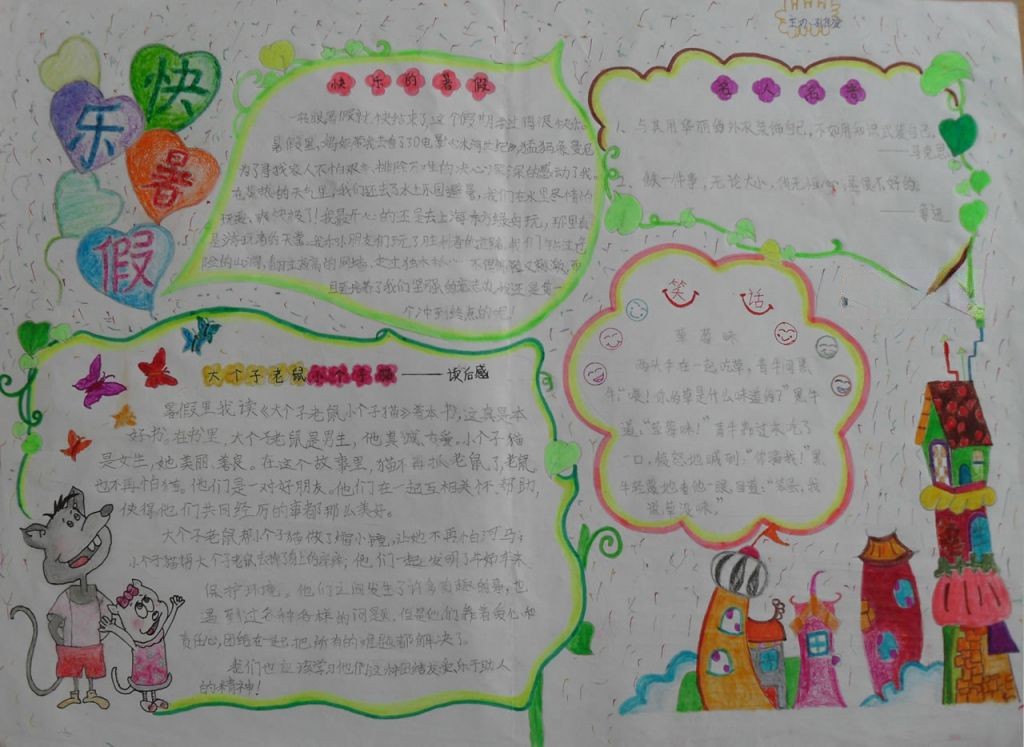 快乐暑假
快乐的暑假
一转眼暑假就快结束了,这个假期过得很快乐。
暑假里,妈妈带我去看了3D电影《冰河世纪》,猛犸象曼尼
为了寻找家人不怕艰辛、排除万难的决心深深的感动了我。
在炎热的天气里,我们还去了水上乐园避暑,我们在水里尽情的
玩耍,爽快极了!我最开心的还是去上海东方绿舟玩,那里
是游玩者的天堂。我和小朋友们玩了胜利者的道路,我们
险的山洞,翻过高高的网墙,走过独木桥 不但惊险又刺激,而
且还培养了我们坚强的意志力,我还是第一
个冲到终点的呢!
名人名言
1、与其用华丽的外衣装饰自己,不如用知识武装自己。
——马克思
2、做一件事,无论大小,倘无恒心,是很不好的。
——鲁迅
笑话
草莓味
两头牛在一起吃草,青牛问黑
牛:“喂!你的草是什么味道的?”黑牛
道:“草莓味!”青牛靠过来吃了
一口,愤怒地喊到:“你骗我!”黑
牛轻蔑地看他一眼,回道:“笨蛋,我
说草没味。”
大个子老鼠小个子猫——读后感
暑假里我读《大个子老鼠小个子猫》着本书,这真是本
好书。在书里,大个子老鼠是男生,他真诚、可爱。小个子猫
是女生,她美丽、善良。在这个故事里,猫不再抓老鼠了,老鼠
也不再怕猫。他们是一对好朋友。他们在一起互相关怀、帮助,
使得他们共同经历的事都那么美好。
大个子老鼠帮小个子猫做了
小个子猫帮大个子老鼠 他们一起发明了
保护环境。他们之间发生了许多有趣的事,也
遇到过各种各样的问题,但是他们靠着爱心和
责任心,团结在一起,把所有的难题都解决了。
我们也应该学习他们这种团结友爱、乐于助人
的精神!